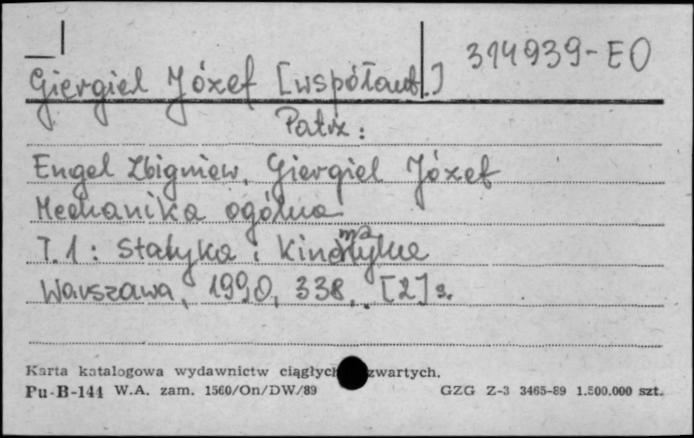 314939-EO
Giergiel Józef [współaut.]
Patrz:
Engel Zbigniew, Giergiel Józef
Mechanika ogólna
T.1: Statyka i Kinematyka
Warszawa, 1990, 338, [2] s.
Karta katalogowa wydawnictw ciągłych zwartych.
Pu-B-144 W.A. zam. 1560/On/DW/89 GZG Z-3 3465-89 1.500.000 szt.